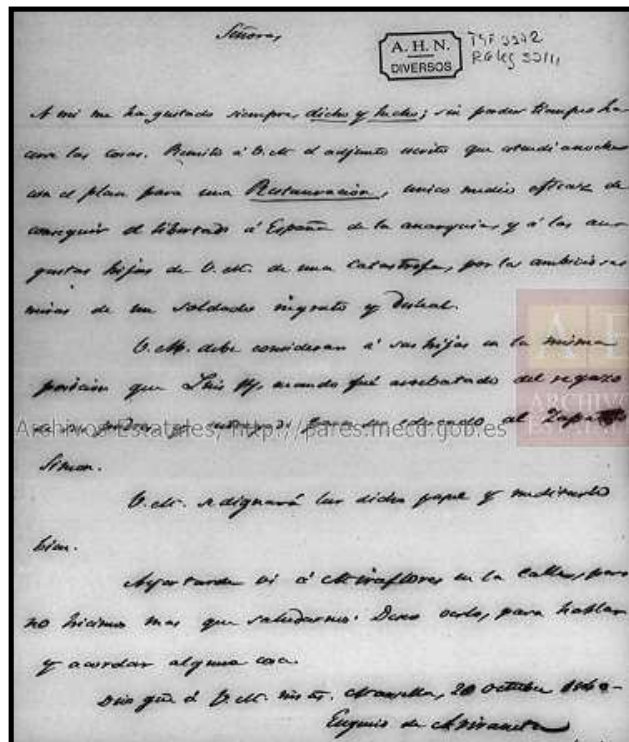 Señora,
A. H. N.
DIVERSOS
A mi me ha gustado siempre, dicho y hecho; sin perder tiempo ha
cerse las cosas. Remito á V.M. el adjunto escrito que estendí anoche
con el plan para una Restauración, unico medio eficaz de
conseguir el libertado á España de la anarquia, y á las au
gustas hijas de V.M. de una Catastrofe, por las ambiciosas
miras de un soldado ingrato y desleal.
V.M. debe considerar á sus hijas en la misma
posicion que Luis 17, cuando fué arrebatado del regazo
de su madre y entregado para ser educado al Zapatero
Archivos Estatales, http://pares.mecd.gob.es
Simon.
V.M. se dignará leer dicho papel y meditarlo
bien.
Ayer tarde vi á Miraflores en la Calle, pero
no hicimos mas que saludarnos. Deseo verlo, para hablar
y acordar alguna cosa.
Dios gũe á V.M. ms. as. Marsella, 20 octubre 1840-
Eugenio de Aviraneta